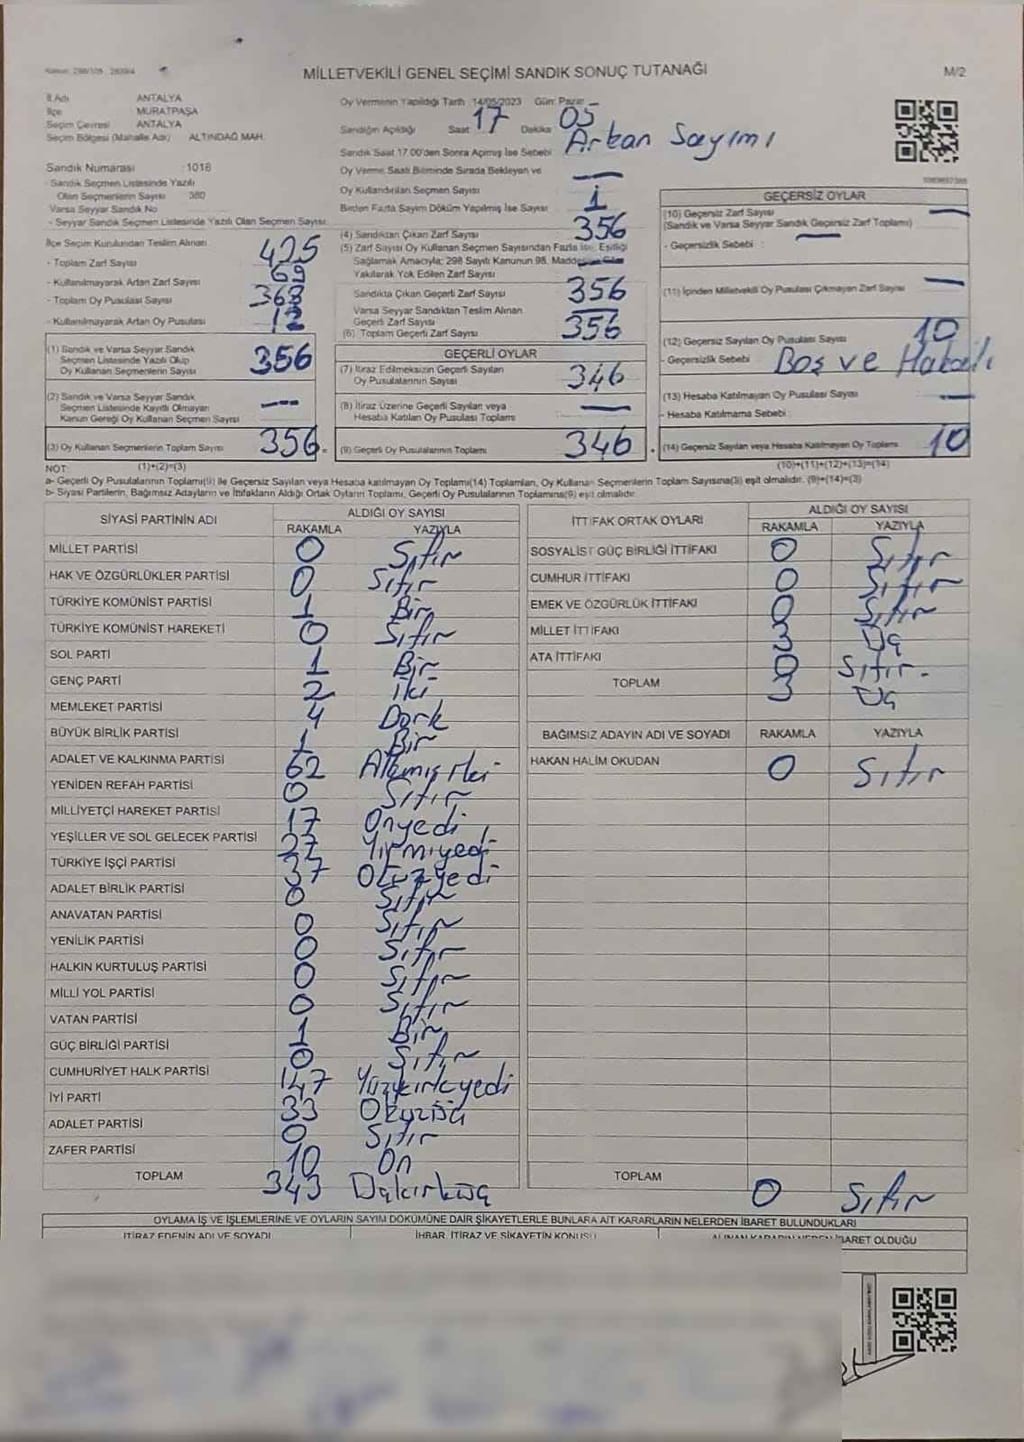 MİLLETVEKİLİ GENEL SEÇİMİ SANDIK SONUÇ TUTANAĞI
M/2
İl Adı ANTALYA
İlçe MURATPAŞA
Seçim Çevresi ANTALYA
Seçim Bölgesi (Mahalle Adı) ALTINDAĞ MAH.
Sandık Numarası :1018
- Sandık Seçmen Listesinde Yazılı
Olan Seçmenlerin Sayısı 380
Varsa Seyyar Sandık No
- Seyyar Sandık Seçmen Listesinde Yazılı Olan Seçmen Sayısı
İlçe Seçim Kurulundan Teslim Alınan
- Toplam Zarf Sayısı 425
- Kullanılmayarak Artan Zarf Sayısı 69
- Toplam Oy Pusulası Sayısı 368
- Kullanılmayarak Artan Oy Pusulası 12
(1) Sandık ve Varsa Seyyar Sandık
Seçmen Listesinde Yazılı Olup
Oy Kullanan Seçmenlerin Sayısı 356
(2) Sandık ve Varsa Seyyar Sandık
Seçmen Listesinde Kayıtlı Olmayan
Kanun Gereği Oy Kullanan Seçmen Sayısı
(3) Oy Kullanan Seçmenlerin Toplam Sayısı 356
(1)+(2)=(3)
Oy Vermenin Yapıldığı Tarih 14/05/2023 Gün: Pazar
Sandığın Açıldığı Saat 17 Dakika 05
Sandık Saat 17.00'den Sonra Açılmış İse Sebebi Artan Sayımı
Oy Verme Saati Bitiminde Sırada Bekleyen ve
Oy Kullandırılan Seçmen Sayısı
Birden Fazla Sayım Döküm Yapılmış İse Sayısı 1
(4) Sandıktan Çıkan Zarf Sayısı 356
(5) Zarf Sayısı Oy Kullanan Seçmen Sayısından Fazla İse, Eşitliği
Sağlamak Amacıyla; 298 Sayılı Kanunun 98.
Yakılarak Yok Edilen Zarf Sayısı
Sandıkta Çıkan Geçerli Zarf Sayısı 356
Varsa Seyyar Sandıktan Teslim Alınan
Geçerli Zarf Sayısı
(6) Toplam Geçerli Zarf Sayısı 356
GEÇERLİ OYLAR
(7) İtiraz Edilmeksizin Geçerli Sayılan
Oy Pusulalarının Sayısı 346
(8) İtiraz Üzerine Geçerli Sayılan veya
Hesaba Katılan Oy Pusulası Toplamı
(9) Geçerli Oy Pusulalarının Toplamı 346
GEÇERSİZ OYLAR
(10) Geçersiz Zarf Sayısı
(Sandık ve Varsa Seyyar Sandık Geçersiz Zarf Toplamı)
- Geçersizlik Sebebi :
(11) İçinden Milletvekili Oy Pusulası Çıkmayan Zarf Sayısı
(12) Geçersiz Sayılan Oy Pusulası Sayısı 10
- Geçersizlik Sebebi Boş ve
(13) Hesaba Katılmayan Oy Pusulası Sayısı
- Hesaba Katılmama Sebebi
(14) Geçersiz Sayılan veya Hesaba Katılmayan Oy Toplamı 10
(10)+(11)+(12)+(13)=(14)
NOT:
a- Geçerli Oy Pusulalarının Toplamı(9) ile Geçersiz Sayılan veya Hesaba katılmayan Oy Toplamı(14) Toplamları, Oy Kullanan Seçmenlerin Toplam Sayısına(3) eşit olmalıdır. (9)+(14)=(3)
b- Siyasi Partilerin, Bağımsız Adayların ve İttifakların Aldığı Ortak Oyların Toplamı, Geçerli Oy Pusulalarının Toplamına(9) eşit olmalıdır.
SİYASİ PARTİNİN ADI ALDIĞI OY SAYISI
RAKAMLA YAZIYLA
MİLLET PARTİSİ 0 Sıfır
HAK VE ÖZGÜRLÜKLER PARTİSİ 0 Sıfır
TÜRKİYE KOMÜNİST PARTİSİ 1 Bir
TÜRKİYE KOMÜNİST HAREKETİ 0 Sıfır
SOL PARTİ 1 Bir
GENÇ PARTİ 2 iki
MEMLEKET PARTİSİ 4 Dört
BÜYÜK BİRLİK PARTİSİ 1 Bir
ADALET VE KALKINMA PARTİSİ 62 Atmış iki
YENİDEN REFAH PARTİSİ 0 Sıfır
MİLLİYETÇİ HAREKET PARTİSİ 17 Onyedi
YEŞİLLER VE SOL GELECEK PARTİSİ 27 Yirmiyedi
TÜRKİYE İŞÇİ PARTİSİ 37 Otuzyedi
ADALET BİRLİK PARTİSİ 0 Sıfır
ANAVATAN PARTİSİ 0 Sıfır
YENİLİK PARTİSİ 0 Sıfır
HALKIN KURTULUŞ PARTİSİ 0 Sıfır
MİLLİ YOL PARTİSİ 0 Sıfır
VATAN PARTİSİ 1 Bir
GÜÇ BİRLİĞİ PARTİSİ 0 Sıfır
CUMHURİYET HALK PARTİSİ 147 Yüzkırkyedi
İYİ PARTİ 33 Otuzüç
ADALET PARTİSİ 0 Sıfır
ZAFER PARTİSİ 10 On
TOPLAM 343
İTTİFAK ORTAK OYLARI ALDIĞI OY SAYISI
RAKAMLA YAZIYLA
SOSYALİST GÜÇ BİRLİĞİ İTTİFAKI 0 Sıfır
CUMHUR İTTİFAKI 0 Sıfır
EMEK VE ÖZGÜRLÜK İTTİFAKI 0 Sıfır
MİLLET İTTİFAKI 3 Üç
ATA İTTİFAKI 0 Sıfır
TOPLAM 3 Üç
BAĞIMSIZ ADAYIN ADI VE SOYADI RAKAMLA YAZIYLA
HAKAN HALİM OKUDAN 0 Sıfır
TOPLAM 0 Sıfır
OYLAMA İŞ VE İŞLEMLERİNE VE OYLARIN SAYIM DÖKÜMÜNE DAİR ŞİKAYETLERLE BUNLARA AİT KARARLARIN NELERDEN İBARET BULUNDUKLARI
İTİRAZ EDENİN ADI VE SOYADI İHBAR, İTİRAZ VE ŞİKAYETİN KONUSU ALINAN KARARIN NEDEN İBARET OLDUĞU